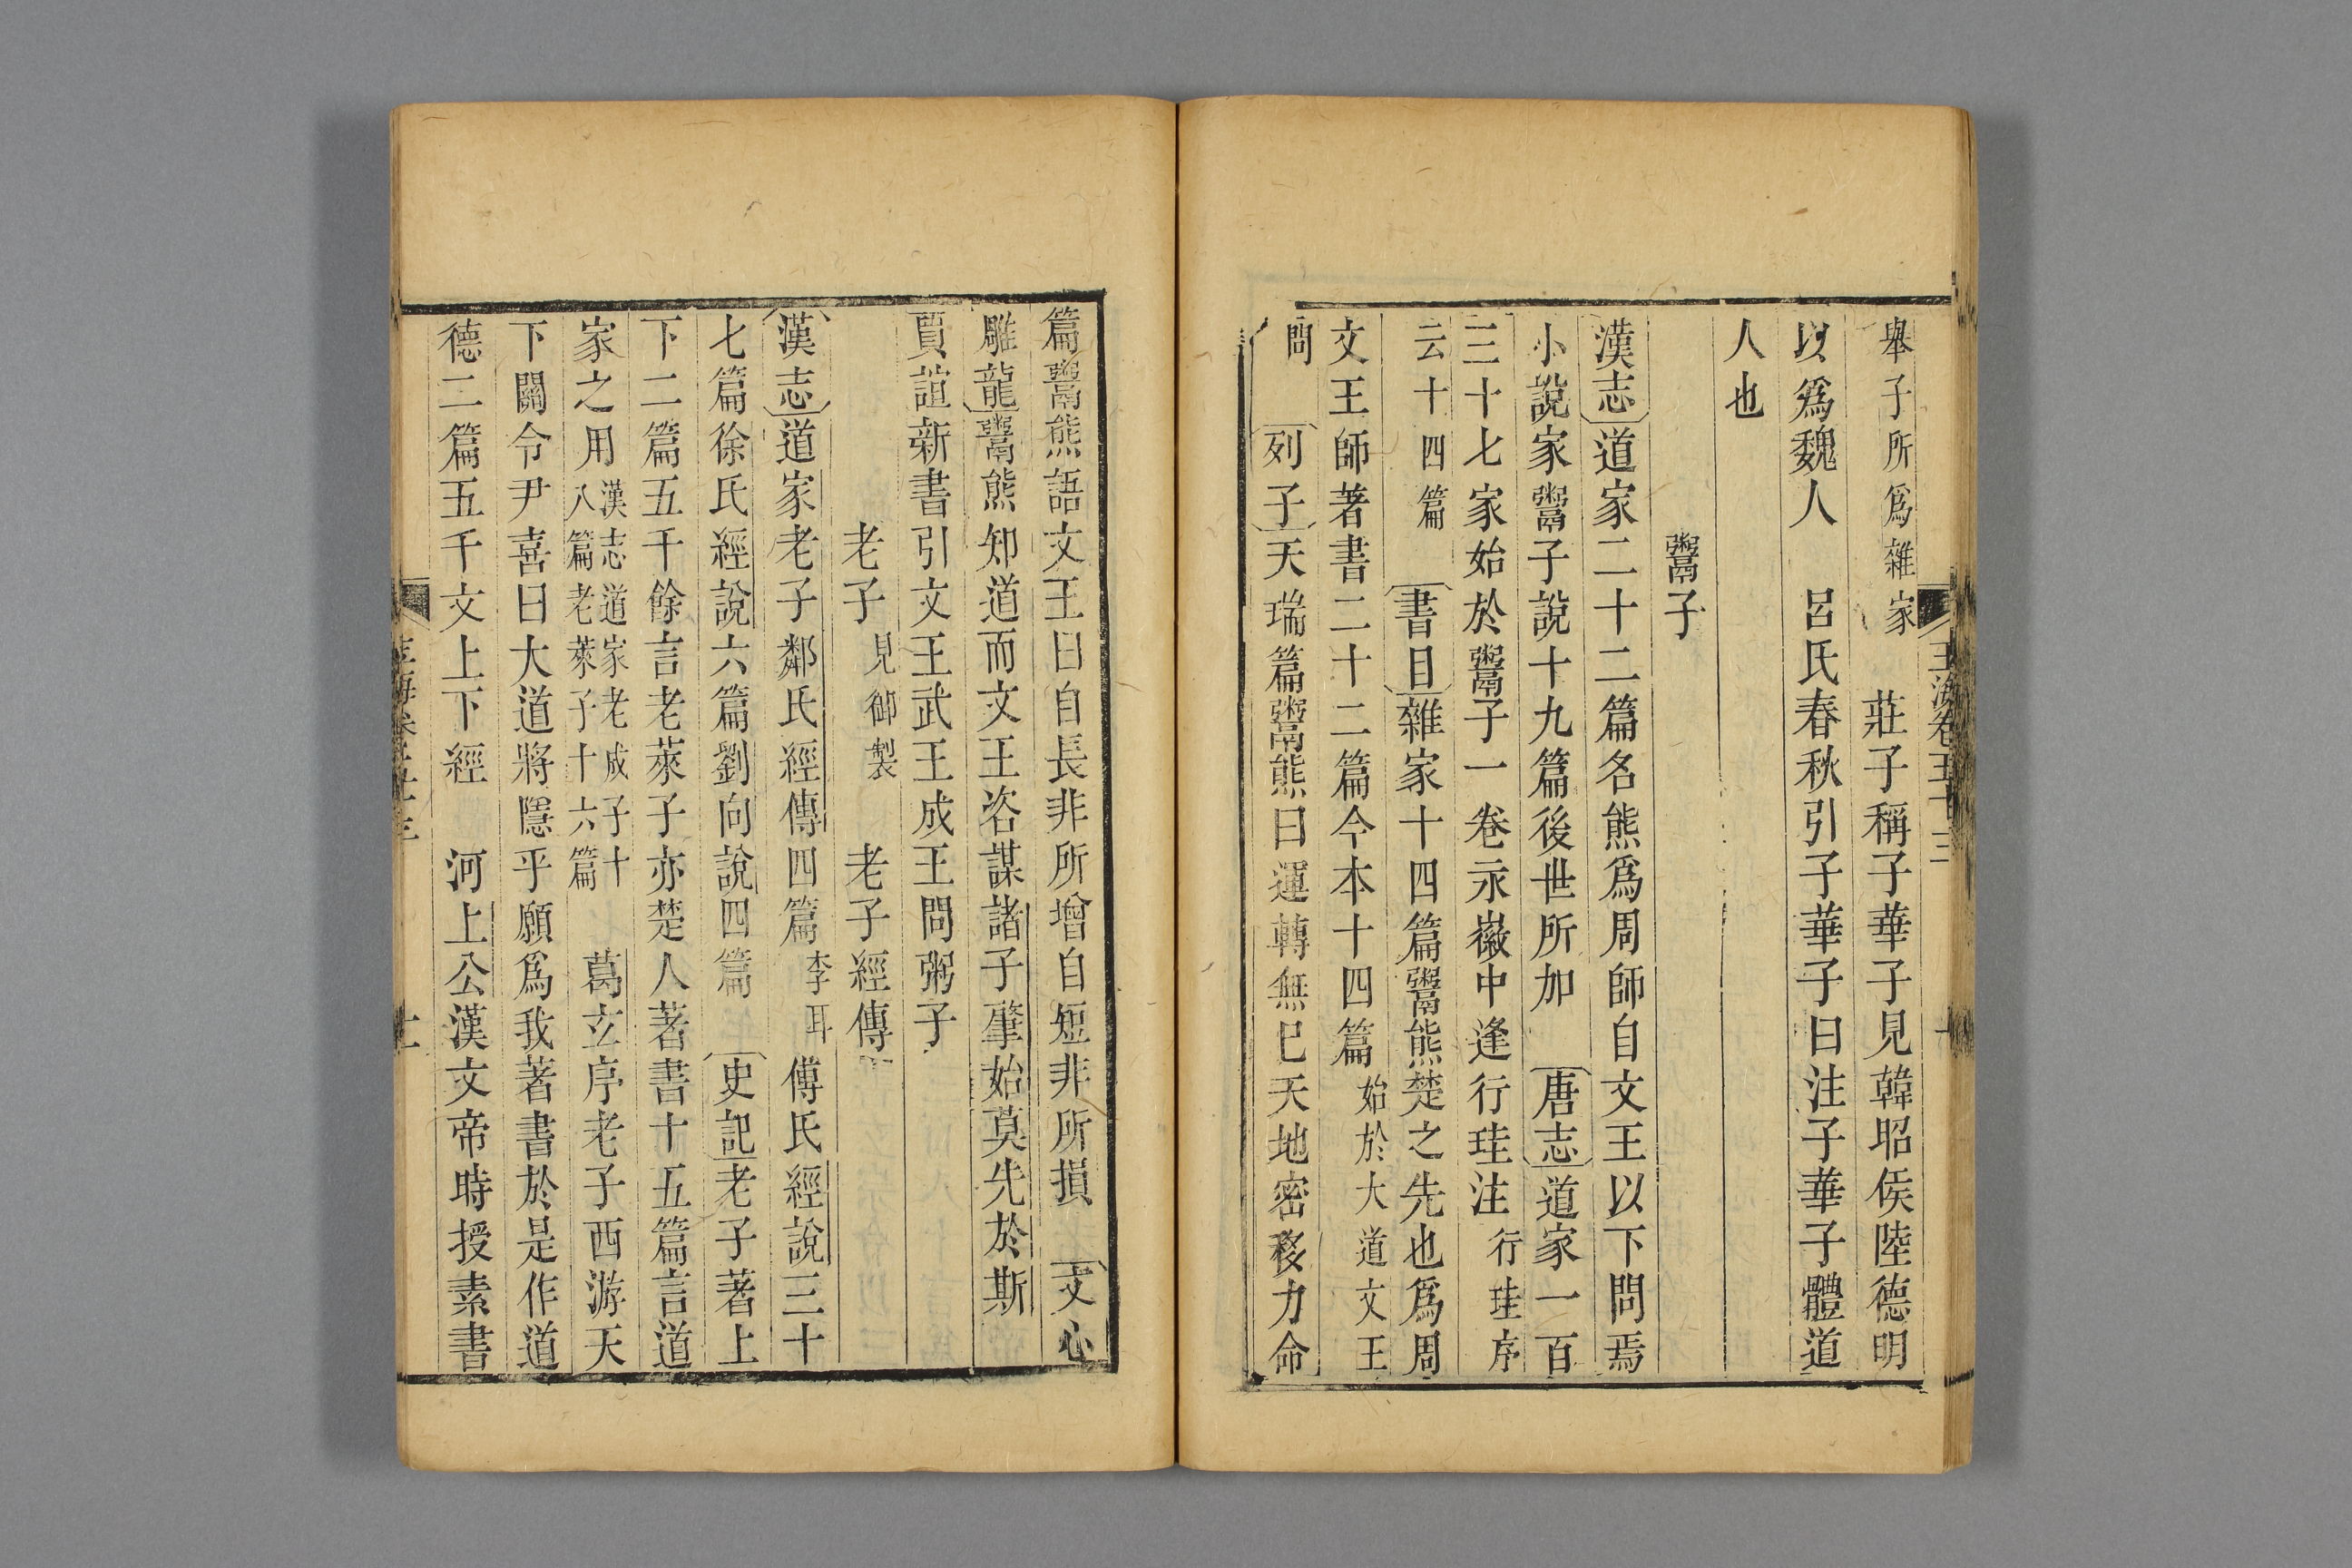 舉子所爲雜家　莊子稱子華子見韓昭侯陸德明
以爲魏人　呂氏春秋引子華子曰注子華子體道
人也
鬻子
漢志道家二十二篇名熊爲周師自文王以下問焉
小說家鬻子說十九篇後世所加　唐志道家一百
三十七家始於鬻子一卷永徽中逢行珪注行珪序
云十四篇　書目雜家十四篇鬻熊楚之先也爲周
文王師著書二十二篇今本十四篇始於大道文王
問　列子天瑞篇鬻熊曰運轉無已天地密移力命
篇鬻熊語文王曰自長非所增自短非所損　文心
雕龍鬻熊知道而文王咨謀諸子肇始莫先於斯
賈誼新書引文王武王成王問粥子
老子見御製　老子經傳
漢志道家老子鄰氏經傳四篇李耳　傅氏經說三十
七篇徐氏經說六篇劉向說四篇　史記老子著上
下二篇五千餘言老萊子亦楚人著書十五篇言道
家之用漢志道家老成子十八篇老萊子十六篇　葛玄序老子西游天
下關令尹喜曰大道將隱乎願爲我著書於是作道
德二篇五千文上下經　河上公漢文帝時授素書
玉海卷五十三